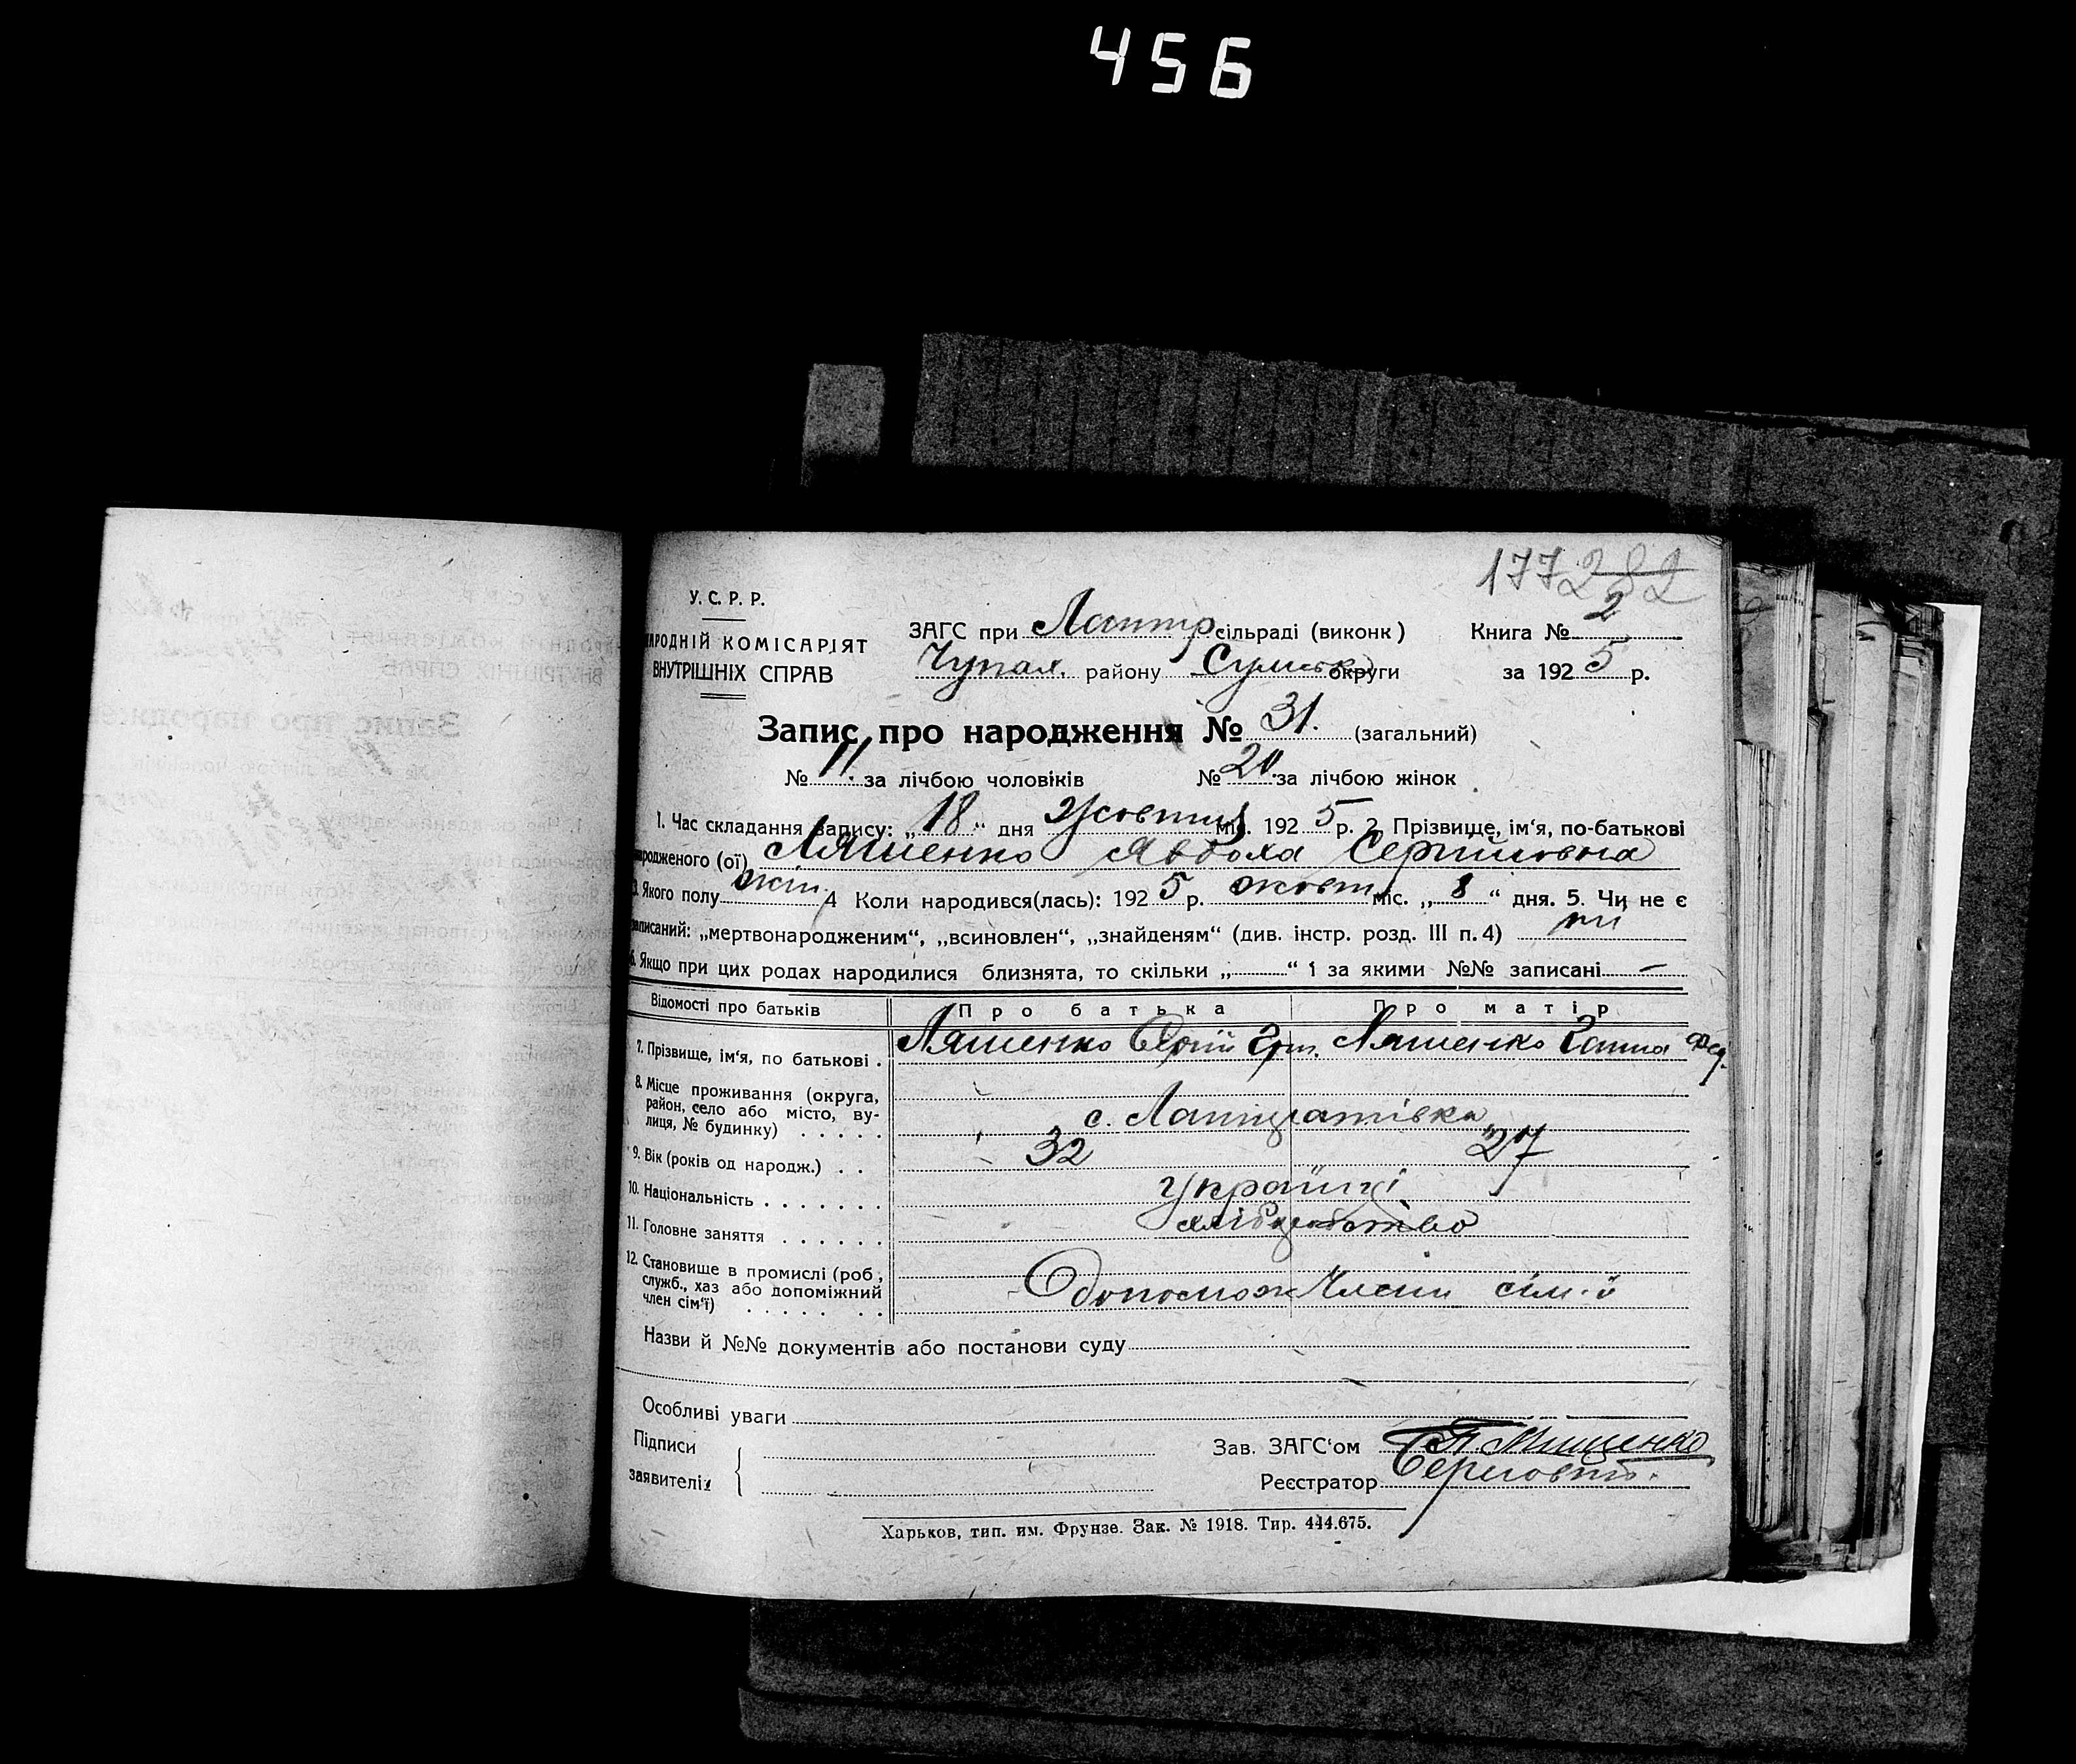 456
177 282
У. С. Р. Р.
НАРОДНІЙ КОМІСАРІЯТ
ВНУТРІШНІХ СПРАВ
ЗАГС при Лантр сільраді (виконк)
Чупах. району Сумської округи
Книга № 2
за 1925 р.
Запис про народження № 31. (загальний)
№ 11. за лічбою чоловіків № 20 за лічбою жінок
1. Час складання запису: „18“ дня Жовтня міс. 1925 р. 2. Прізвище, ім‘я, по-батькові
народженого (ої) Ляшенко Явдоха Сергіївна
3. Якого полу жін. 4 Коли народився(лась): 1925 р. жовтн міс. „8“ дня. 5. Чи не є
записаний: „мертвонародженим“, „всиновлен“, „знайденям“ (див. інстр. розд. III п. 4) ні
6. Якщо при цих родах народилися близнята, то скільки „......“ і за якими №№ записані —
Відомості про батьків Про батька Про матір
7. Прізвище, ім‘я, по батькові . Ляшенко Сергій Гри. Ляшенко Ганна Фед.
8. Місце проживання (округа,
район, село або місто, ву-
лиця, № будинку) . . . . . с.
9. Вік (років од народж.) . . 32 27
10. Національність . . . . . . . Українці
11. Головне заняття . . . . . . хліборобство
12. Становище в промислі (роб,
служб., хаз або допоміжний
член сім‘ї) . . . . . . . Одопомож Члени сім-ї
Назви й №№ документів або постанови суду
Особливі уваги
Підписи
заявителів
Зав. ЗАГС‘ом П. Мищенко
Реєстратор
Харьков, тип. им. Фрунзе. Зак. № 1918. Тир. 444.675.